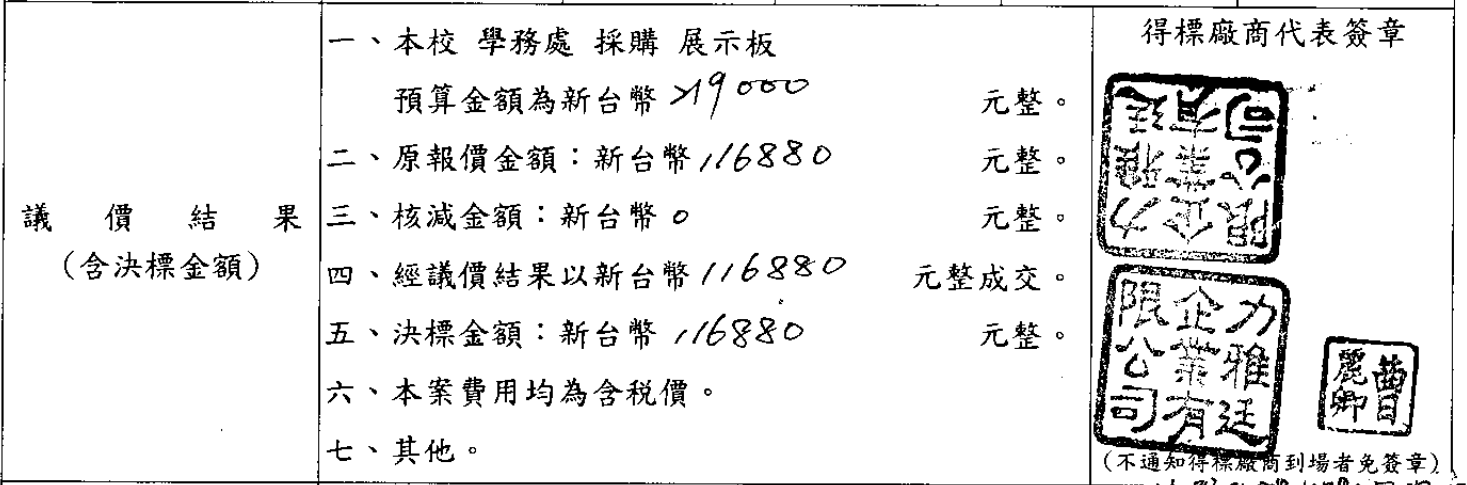 議價結果
(含決標金額)
一、本校 學務處 採購 展示板
預算金額為新台幣 元整。
二、原報價金額：新台幣 116880 元整。
三、核減金額：新台幣 0 元整。
四、經議價結果以新台幣 116880 元整成交。
五、決標金額：新台幣 116880 元整。
六、本案費用均為含稅價。
七、其他。
得標廠商代表簽章
力雅廷
企業有
限公司
力雅廷
企業有
限公司
曹
麗卿
(不通知得標廠商到場者免簽章)